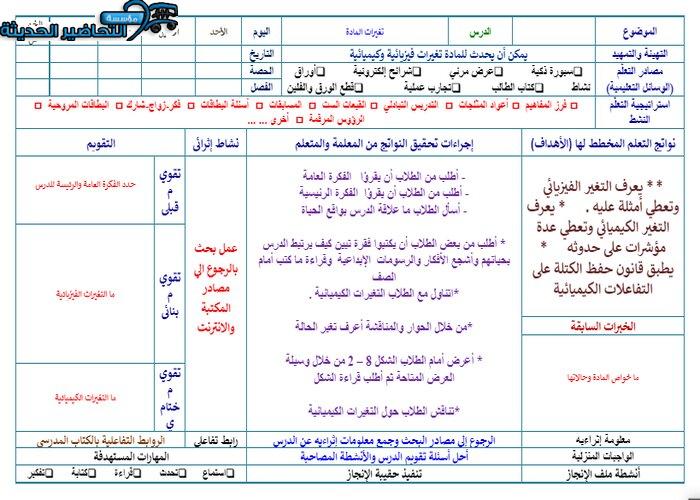 مؤسسة
التحاضير الحديثة
الموضوع
الدرس
تغيرات المادة
اليوم
الأحد
التهيئة والتمهيد
يمكن أن يحدث للمادة تغيرات فيزيائية وكيميائية
التاريخ
مصادر التعلم
(الوسائل التعليمية)
❑سبورة ذكية ❑عرض مرئي ❑شرائح إلكترونية ❑أوراق
نشاط ❑كتاب الطالب ❑تجارب عملية ❑قطع الورق والفلين
الحصة
الفصل
استراتيجية التعلم
النشط
□ فرز المفاهيم □ أعواد المثلجات □ التدريس التبادلي □ القبعات الست □ المسابقات □ أسئلة البطاقات □ فكر.زواج.شارك □ البطاقات المروحية □
الرؤوس المرقمة □ أخرى ... ...
نواتج التعلم المخطط لها (الأهداف)
إجراءات تحقيق النواتج من المعلمة والمتعلم
نشاط إثرائى
التقويم
** يعرف التغير الفيزيائي
وتعطي أمثلة عليه . * يعرف
التغير الكيميائي وتعطي عدة
مؤشرات على حدوثه *
يطبق قانون حفظ الكتلة على
التفاعلات الكيميائية
الخبرات السابقة
ما خواص المادة وحالاتها
- أطلب من الطلاب أن يقرؤا الفكرة العامة
- أطلب من الطلاب أن يقرؤا الفكرة الرئيسية
- أسأل الطلاب ما علاقة الدرس بواقع الحياة
* أطلب من بعض الطلاب أن يكتبوا فقرة تبين كيف يرتبط الدرس
بحياتهم وأشجع الأفكار والرسومات الإبداعية وقراءة ما كتب أمام
الصف
*اتناول مع الطلاب التغيرات الكيميائية .
*من خلال الحوار والمناقشة أعرف تغير الحالة
* أعرض أمام الطلاب الشكل 8 – 2 من خلال وسيلة
العرض المتاحة ثم أطلب قراءة الشكل
*تناقش الطلاب حول التغيرات الكيميائية
عمل بحث
بالرجوع الي
مصادر
المكتبة
والانترنت
تقوي
م
قبلى
حدد الفكرة العامة والرئيسة للدرس
تقوي
م
بنائى
ما التغيرات الفيزيائية
تقوي
م
ختام
ي
ما التغيرات الكيميائية
معلومة إثراءيه
الرجوع إلي مصادر البحث وجمع معلومات إثراءيه عن الدرس
رابط تفاعلى
الروابط التفاعلية بالكتاب المدرسى
الواجبات المنزلية
أحل أسئلة تقويم الدرس والأنشطة المصاحبة
المهارات المستهدفة
أنشطة ملف الإنجاز
تنفيذ حقيبة الإنجاز
❑استماع ❑تحدث ❑قراءة ❑كتابة ❑تفكير